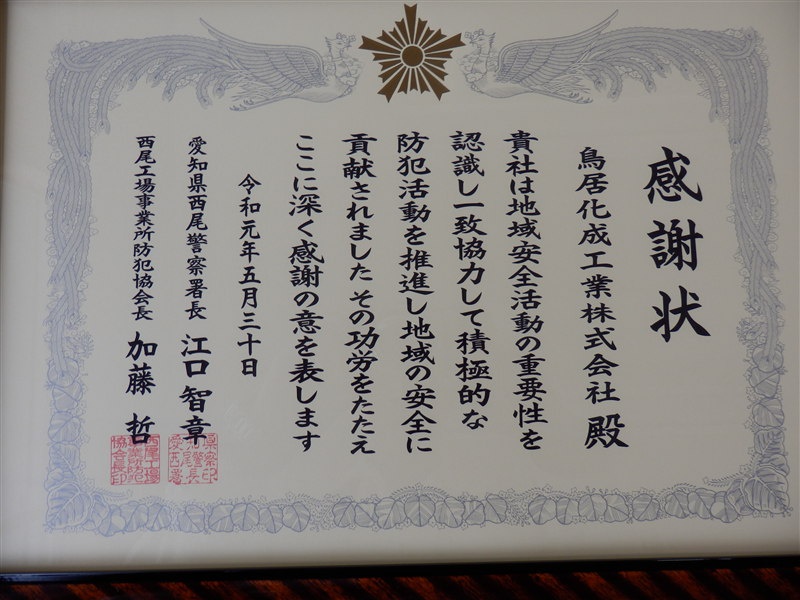 感謝状
鳥居化成工業株式会社 殿
貴社は地域安全活動の重要性を
認識し一致協力して積極的な
防犯活動を推進し地域の安全に
貢献されました その功労をたたえ
ここに深く感謝の意を表します
令和元年五月三十日
愛知県西尾警察署長 江口智章
西尾工場事業所防犯協会長 加藤 哲